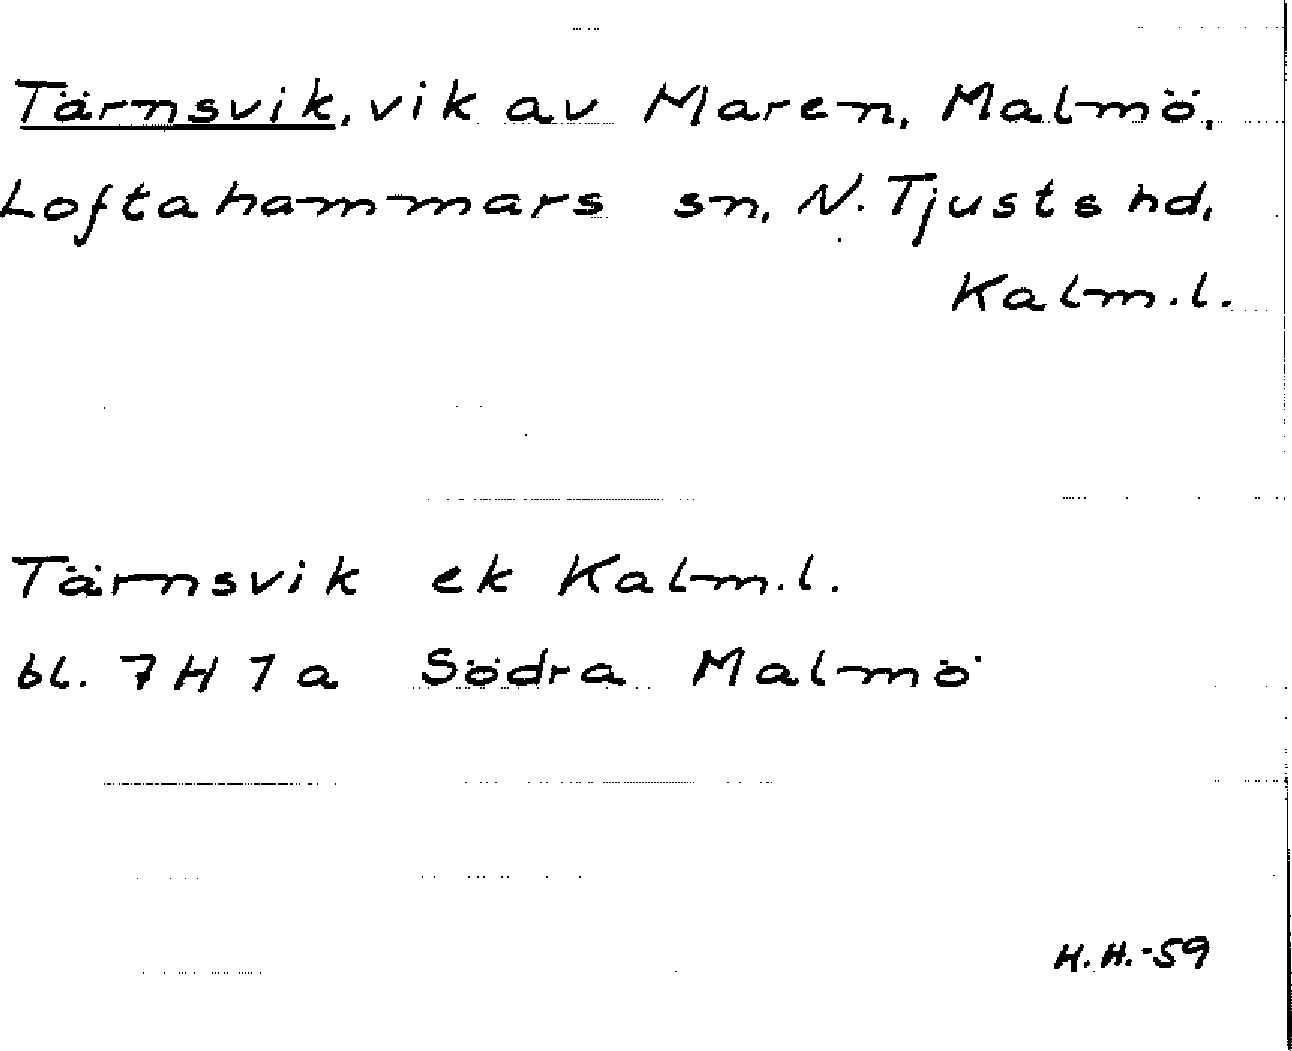 Tärnsvik, vik av Maren, Malmö,
Loftahammars sn, N. Tjusts hd,
Kalm.l.
Tärnsvik ek Kalm.l.
bl. 7H 1a Södra Malmö
H.H.-59